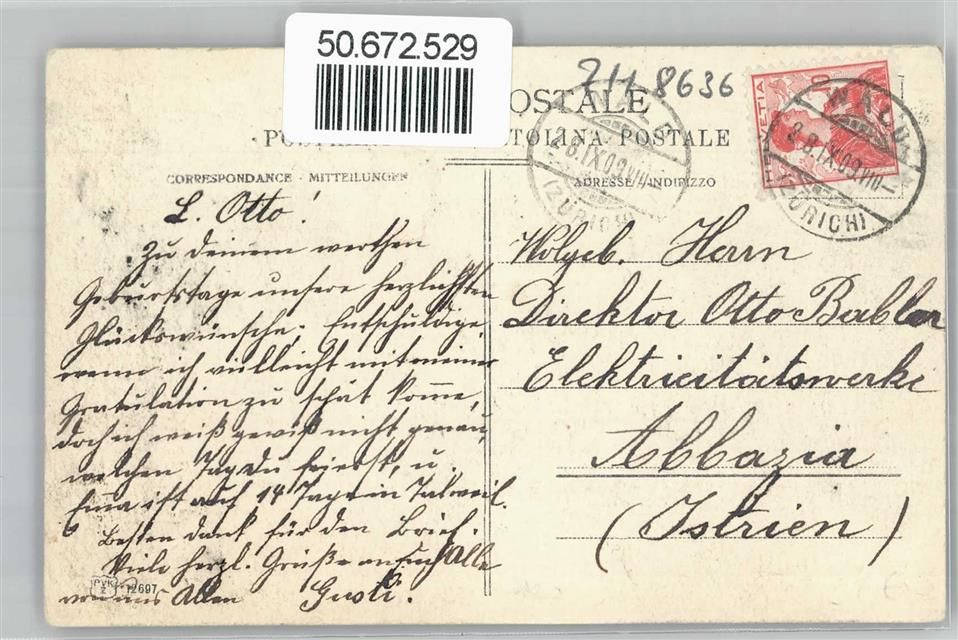 50.672.529
711 8636
OSTALE
POSTKA
TOLINA POSTALE
CORRESPONDANCE - MITTEILUNGEN
ADRESSE / INDIRIZZO
HELVETIA
WALD
8.IX.09.VIII
(ZÜRICH)
WALD
8.IX.09.VIII
(ZÜRICH)
L. Otto!
Zu deinem werthen
Geburtstage unsere herzlichsten
Glückswünsche. Entschuldige
wenn ich vielleicht mit meiner
Gratulation zu spät komme,
doch ich weiß gewiß nicht genau,
welchen Tag du feierst, u.
Emma ist auf 14 Tage in Talweil.
Besten dank für den Brief.
Viele herzl. Grüße an Euch Alle
von uns Allen Gusti.
Wolgeb. Herrn
Direktor Otto Babler
Elektricitätswerke
Abbazia
(Istrien)
PVK
Z
12697